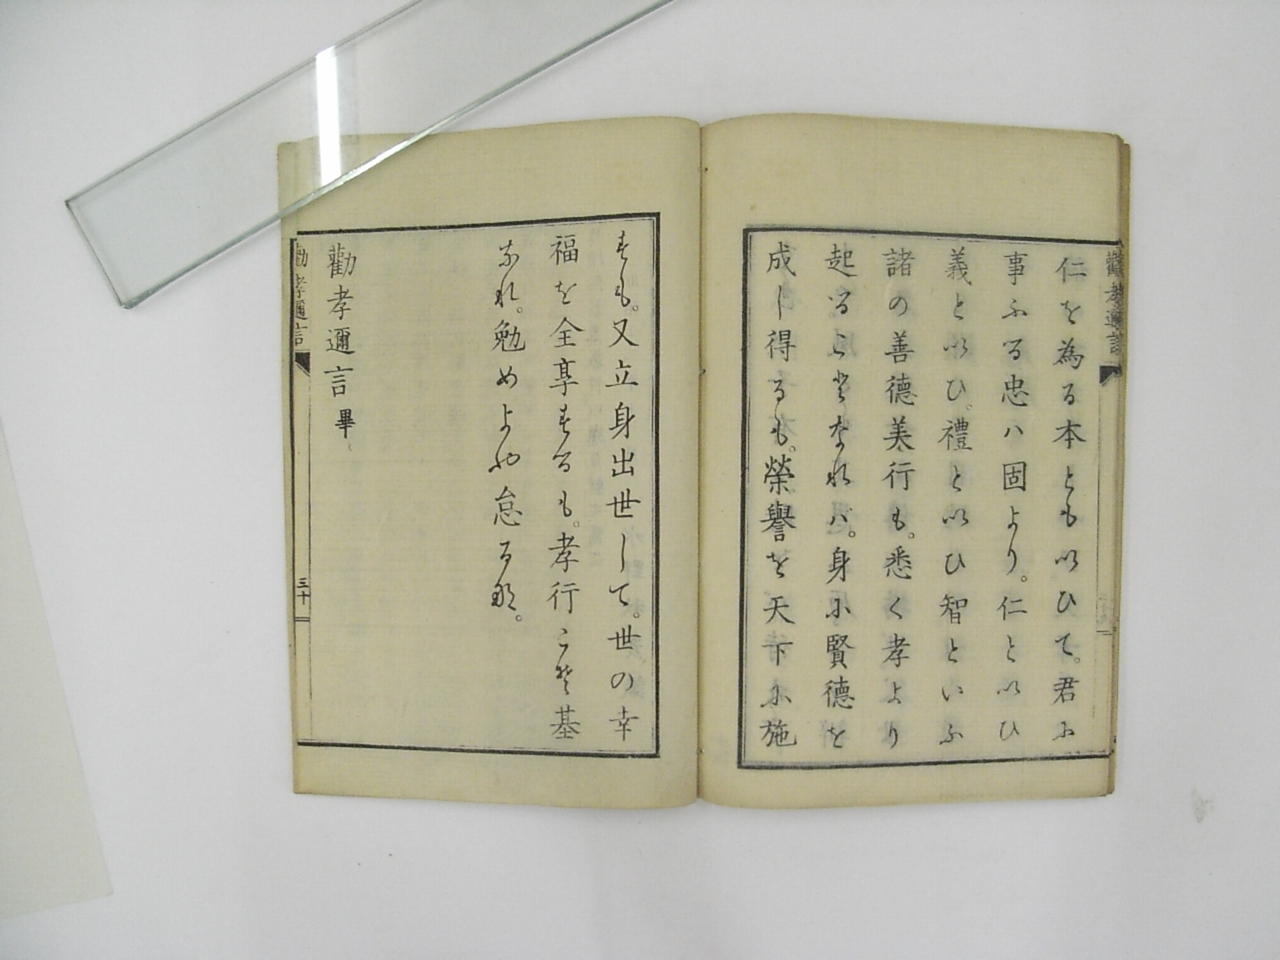 仁を為る本とも以ひて。君ふ
事ふる忠ハ固より。仁と以ひ
義と以ひ。禮と以ひ智といふ
諸の善德美行も。悉く孝より
起るこ登なれバ。身ふ賢德を
成し得るも。榮譽を天下ふ施
春も。又立身出世して。世の幸
福を全享春るも。孝行こ楚基
なれ。勉めよや怠る那。
勸孝邇言 畢
勸孝邇言
三十
勸孝邇言